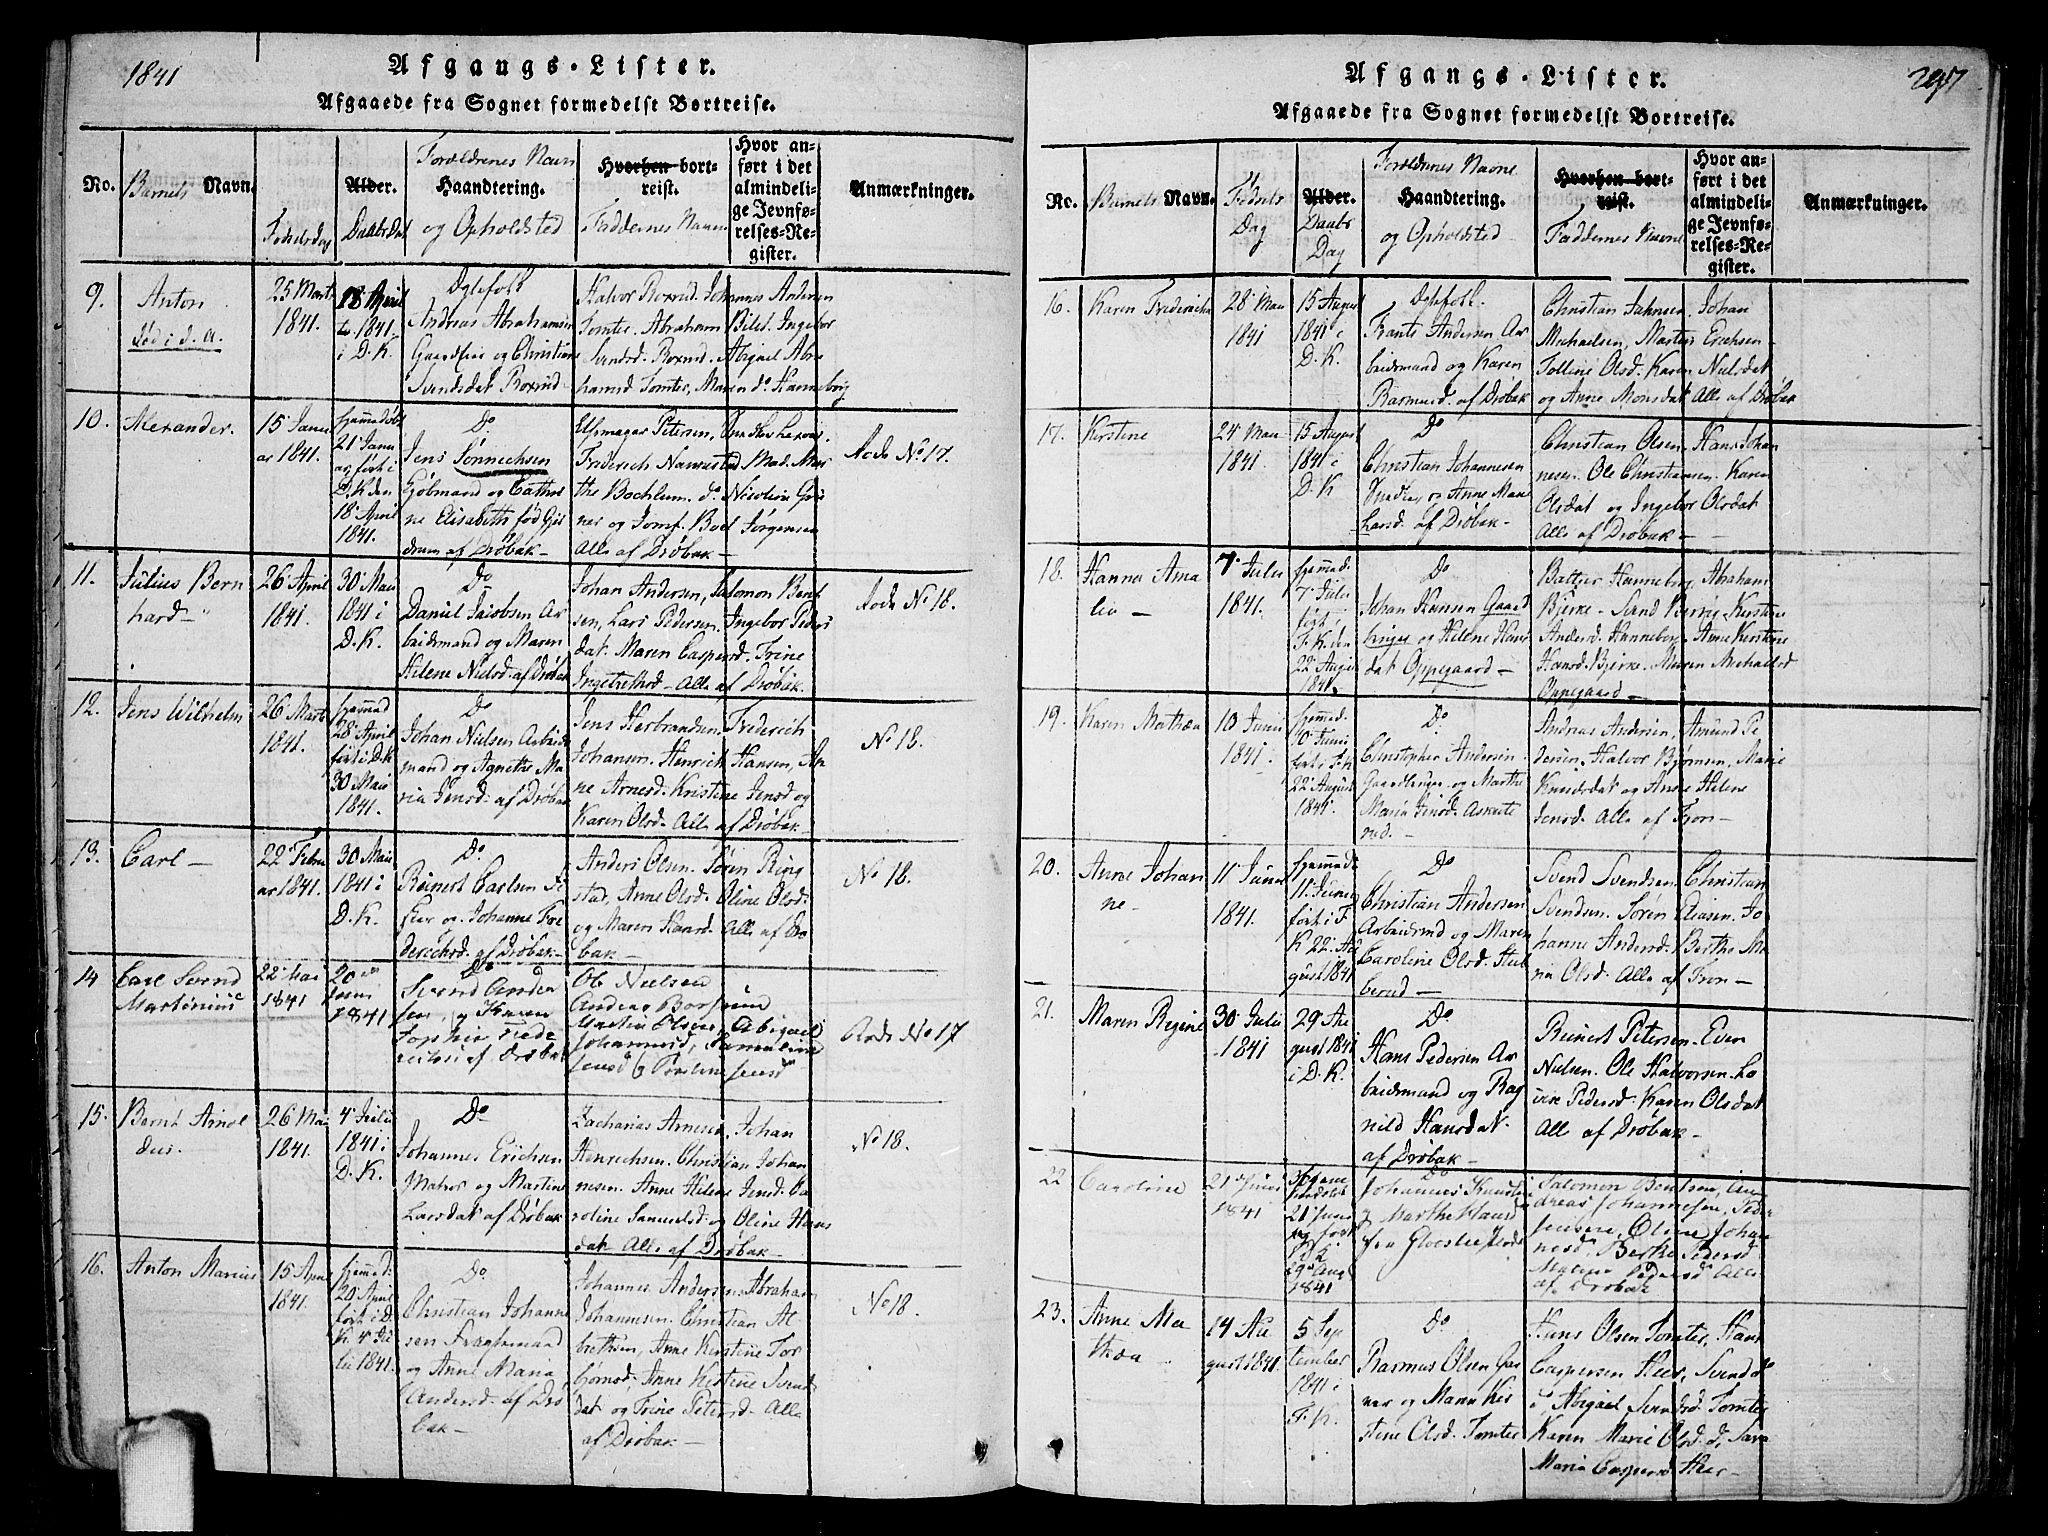 1841
Afgangs-Lister.
Afgaaede fra Sognet formedelst Bortreise.
No.
Barnets Navn.
Fødselsdag
Alder.
Daabsdat
Forældrenes Navn
Haandtering.
og Opholdsted
Hvorhen bort-
reist.
Faddernes Navn
Hvor an-
ført i det
almindeli-
ge Jevnfø-
relses-Re-
gister.
Anmærkninger.
9.
Anton
død i d. A.
25 Mart
1841.
18 April
1841.
i D. K.
Ægtefolk
Andreas Abrahamsen
og Christine
Svendsdat Roxrud
Halvor Roxrud. Johannes Andersen
Tomter. Abraham Ingebor
Svendsd. Roxrud. Abigael Abra
hamsd Tomter, Maren do Hanneborg
10.
Alexander.
15 Janu
ar 1841.
hjemmedøbt
21 Janu
ar ført i
D. K. den
18 April
1841.
Do
Jens Sønnichsen
Kjøbmand og Cathri
ne Elisabeth fød
af Drøbak
Petersen,
Friderich Mad. Mar
the Bochlum. do Nicoline
ner og Jomf. Boel Jørgensen
Alle af Drøbak
Aode No 17.
11.
Julius Bern
hard
26 April
1841.
30 Mai
1841 i
D. K.
Do
Daniel Jacobsen Ar
beidsmand og Maren
Helene Nielsd. af Drøbak
Johan Andersen, Salomon Bent
sen, Lars Pedersen. Ingebor Peders
dat. Maren Caspersd. Trine
Ingebrethsd. Alle af Drøbak.
Aode No 18.
12.
Jens Wilhelm
26 Mart
1841.
hjemmed
28 April
ført i D. K
30 Mai
1841.
Do
Johan Nielsen Arbeids
mand og Agnethe Ma
ria Jensd. af Drøbak
Jens Herbrandsen. Frederich
Johansen. Henrich Hansen, An
ne Arnesd. Kristine Jensd og
Karen Olsd. Alle af Drøbak
No 18.
13.
Carl
22 Febru
ar 1841.
30 Mai
1841 i
D. K.
Do.
Reinert Carlsen Fi
sker og Johanne Fre
derichsd. af Drøbak
Anders Olsen. Søren Ring
stad, Anne Olsd. Oline Olsd.
og Maren Hansd. Alle af Drø
bak
No 18.
14
Carl Svend
Martinius
22 Mai
1841
20de
Juni
1841
Do
Svend Ander
sen, og Karen
Sophie Frede
riksd af Drøbak
Ole Nielsen
Andreas
Martin Olsen, Abigael
Johannesd,
Jensd & Jensd
Aode No 17
15.
Bernt Arnol
dus.
26 Mai
1841.
4 Julii
1841 i
D. K.
Do
Johannes Erichsen
Matros og Martine
Larsdat af Drøbak
Zacharias Arnesen, Johan
Henrichsen. Christian Johan
nesen. Anne Helene Jensd. Ca
roline Samuelsd. og Oline Hans
dat. Alle af Drøbak
No 18.
16.
Anton Marius
15 April
1841.
hjemmed:
20 April
ført i D.
K. 4 Ju
lii 1841.
Do
Christian Johanne
sen
og Anne Maria
Andersd. af Drø
bak
Johannes Andersen. Abraham
Johannesen. Christian Al
brethsen, Anne Kerstine Tor
børnsd, Anne Kerstine Svends
dat og Trine Petersd. Alle
af Drøbak
No 18.
297
Afgangs-Lister.
Afgaaede fra Sognet formedelst Bortreise.
No.
Barnets Navn.
Fødsels
Dag
Alder.
Daabs
Dag
Forældrenes Navne
Haandtering.
og Opholdsted
Hvorhen bort-
reist.
Faddernes Navne
Hvor an-
ført i det
almindeli-
ge Jevnfø-
relses-Re-
gister.
Anmærkninger.
16.
Karen Fredericha
28 Mai
1841
15 August
1841 i
D. K.
Ægtefolk.
Frants Andersen Ar
beidsmand og Karen
Rasmusd. af Drøbak
Christian Johnsen. Johan
Michaelsen, Martin Erichsen
Olsd. Karen Nielsdat
og Anne Monsdat Alle af Drøbak
17.
Kerstine
24 Mai
1841.
15 August
1841 i
D. K
Do
Christian Johannesen
Snedker og Anne Mane
harsd. af Drøbak
Christian Olsen. Hans Johan
nesen. Ole Christiansen. Karen
Olsdat og Ingebor Olsdat
Alle af Drøbak
18.
Hanna Ama
lia
7 Julii
1841.
hjemmed.
7 Julii
ført i
F. K. den
22 August
1841.
Do
Johan Hansen Gaard
bruger og Helene Hans
dat Oppegaard
Baltzer Hanneborg, Abraham
Bjerke. Svend Bjerke. Kerstine
Andersd. Hanneborg. Anne Kerstine
Hansd. Bjerke. Maren Michaelsd
Oppegaard
19.
Karen Mathæa
10 Junii
1841.
hjemmed.
10 Junii
ført i F. K
22 August
1841.
Do.
Christopher Andersen
Gaardbruger og Marthe
Maria Jensd.
rud.
Andreas Andersen, Amund Pe
dersen, Halvor Bjørnsen, Marie
Knudsdat og Anne Helene
Jensd. Alle af Fron
20.
Anne Johan
ne
11 Junii
1841.
hjemmed
11 Junii
ført i F.
K 22. Au
gust 1841
Do
Christian Andersen
Arbeidsmd og Maren
Caroline Olsd.
berud
Svend Svendsen. Christian
Svendsen. Søren Eliasen. Jo
hanne Andersd. Berthe Ma
ria Olsd. Alle af Fron
21.
Maren Regine
30 Julii
1841
29 Au
gust 1841
i D. K.
Do
Hans Pedersen Ar
beidsmand og Rag
nild Hansdat.
af Drøbak
Reinert Petersen. Even
Nielsen. Ole Halvorsen. Lo
vise Pedersd. Karen Olsdat
Alle af Drøbak
22
Caroline
21 Junii
1841
Hjemme
døbt
21 Juni
og ført
D K
29 Aug
1841
Do
Johannes Knudsen
og Marthe Hansd
Salomon Bentsen, An
dreas Johannesen, Peder
Jensen, Oline Johan
nesd. Berthe Pedersd
Maren Pedersd Alle
af Drøbak
23.
Anne Ma
thea
14 Au
gust 1841.
5 Sep
tember
1841 i
F. K.
Do
Rasmus Olsen Gar
ver og Maren Kir
stene Olsd. Tomter
Hans Olsen Tomter, Hans
Caspersen Heer, Svend do
Abigael Svendsd. Tomter
Karen Marie Olsd. do, Sara
Maria Caspersd Heer